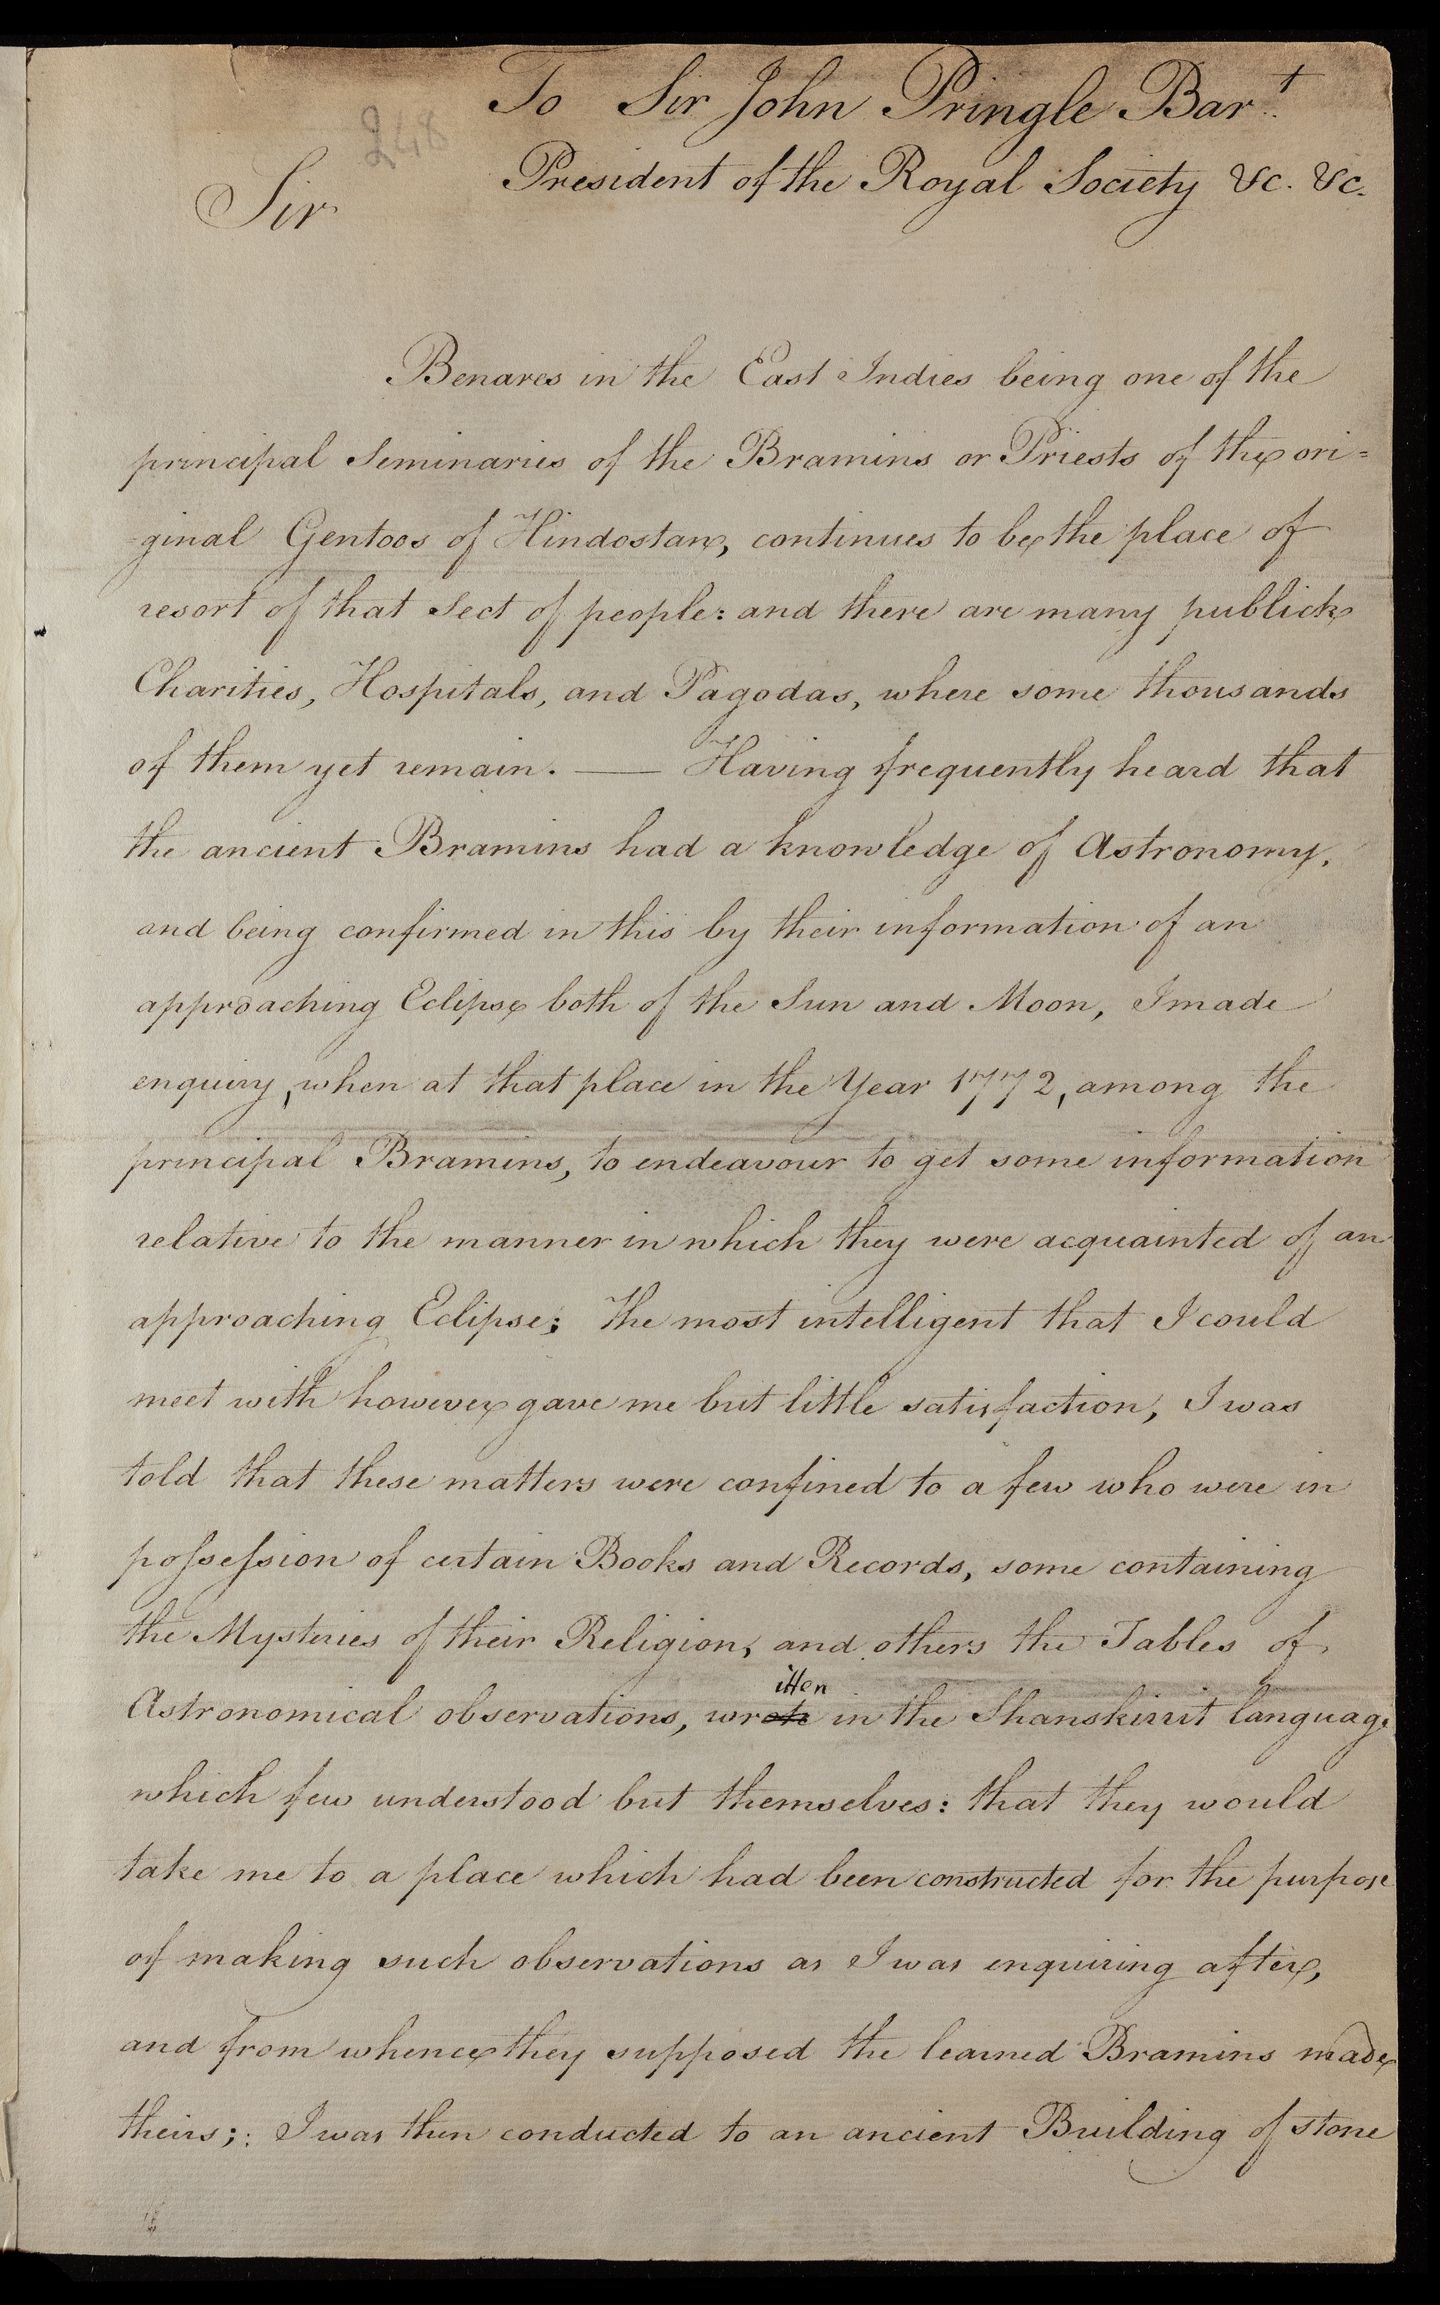 To Sir John Pringle Bar.t
248
President of the Royal Society &c. &c.
Sir
Benares in the East Indies being one of the
principal Seminaries of the Bramins or Priests of the ori=
=ginal Gentoos of Hindostan, continues to be the place of
resort of that Sect of people: and there are many publick
Charities, Hospitals, and Pagodas, where some thousands
of them yet remain. — Having frequently heard that
the ancient Bramins had a knowledge of Astronomy,
and being confirmed in this by their information of an
approaching Eclipse both of the Sun and Moon, I made
enquiry, when at that place in the Year 1772, among the
principal Bramins, to endeavour to get some information
relative to the manner in which they were acquainted of an
approaching Eclipse; The most intelligent that I could
meet with however gave me but little satisfaction, I was
told that these matters were confined to a few who were in
possession of certain Books and Records, some containing
the Mysteries of their Religion, and others the Tables of
itten
Astronomical observations, wrote in the Shanskirrit language
which few understood but themselves: that they would
take me to a place which had been constructed for the purpose
of making such observations as I was enquiring after,
and from whence they supposed the learned Bramins made
theirs;: I was then conducted to an ancient Building of stone